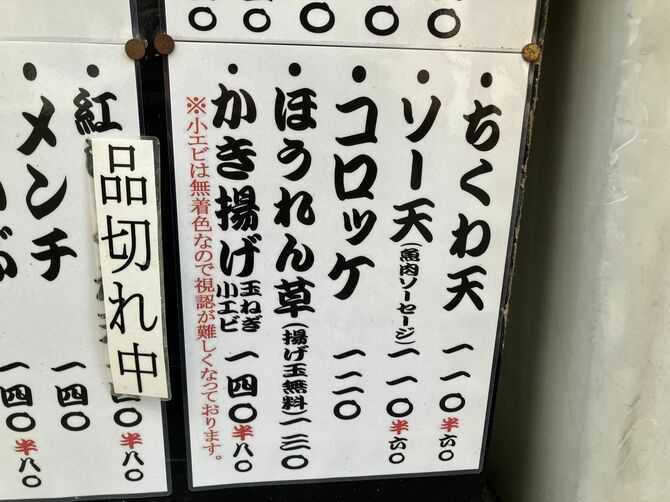 ・ちくわ天 一一〇 半六〇
・ソー天(魚肉ソーセージ) 一一〇 半六〇
・コロッケ 一二〇
・ほうれん草(揚げ玉無料) 一三〇
・かき揚げ 玉ねぎ 小エビ 一四〇 半八〇
※小エビは無着色なので視認が難しくなっております。
・紅
品切れ中
〇 半八〇
・メンチ 一四〇
一四〇 半八〇